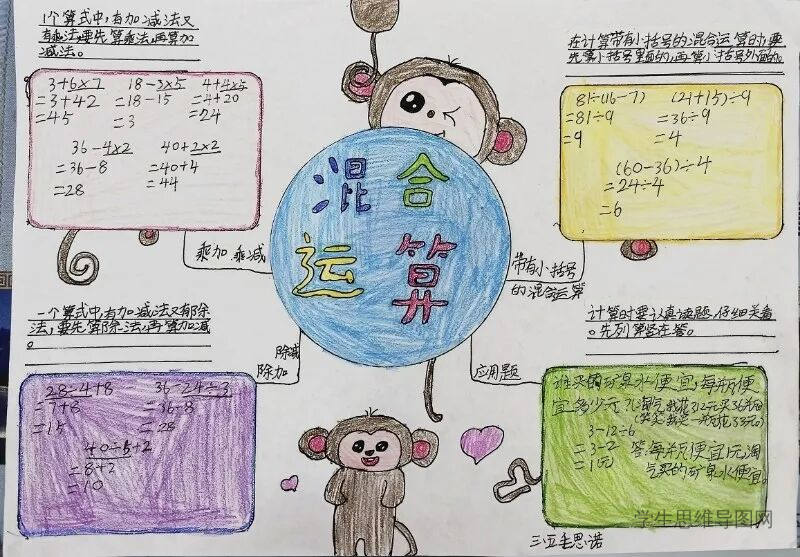 1个算式中,有加减法又
有乘法,要先算乘法,再算加
减法。
3+6×7 18-3×5 4+4×5
=3+42 =18-15 =4+20
=45 =3 =24
36-4×2 40+2×2
=36-8 =40+4
=28 =44
乘加 乘减
在计算带有小括号的混合运算时,要
先算小括号里面的,再算小括号外面的。
81÷(16-7) (21+15)÷9
=81÷9 =36÷9
=9 =4
(60-36)÷4
=24÷4
=6
带有小括号
的混合运算
混合
运算
一个算式中,有加减法又有除
法,要先算除法,再算加减
。
除减
除加
28÷4+8 36-24÷3
=7+8 =36-8
=15 =28
40÷5+2
=8+2
=10
计算时要认真读题,仔细关看
。先列算竖在答。
应用题
谁买的矿泉水便宜,每瓶便
宜多少元?
3-12÷6
=3-2 答:每瓶便宜1元,淘
=1元 气买的矿泉水便宜。
三.五毛思诺
学生思维导图网